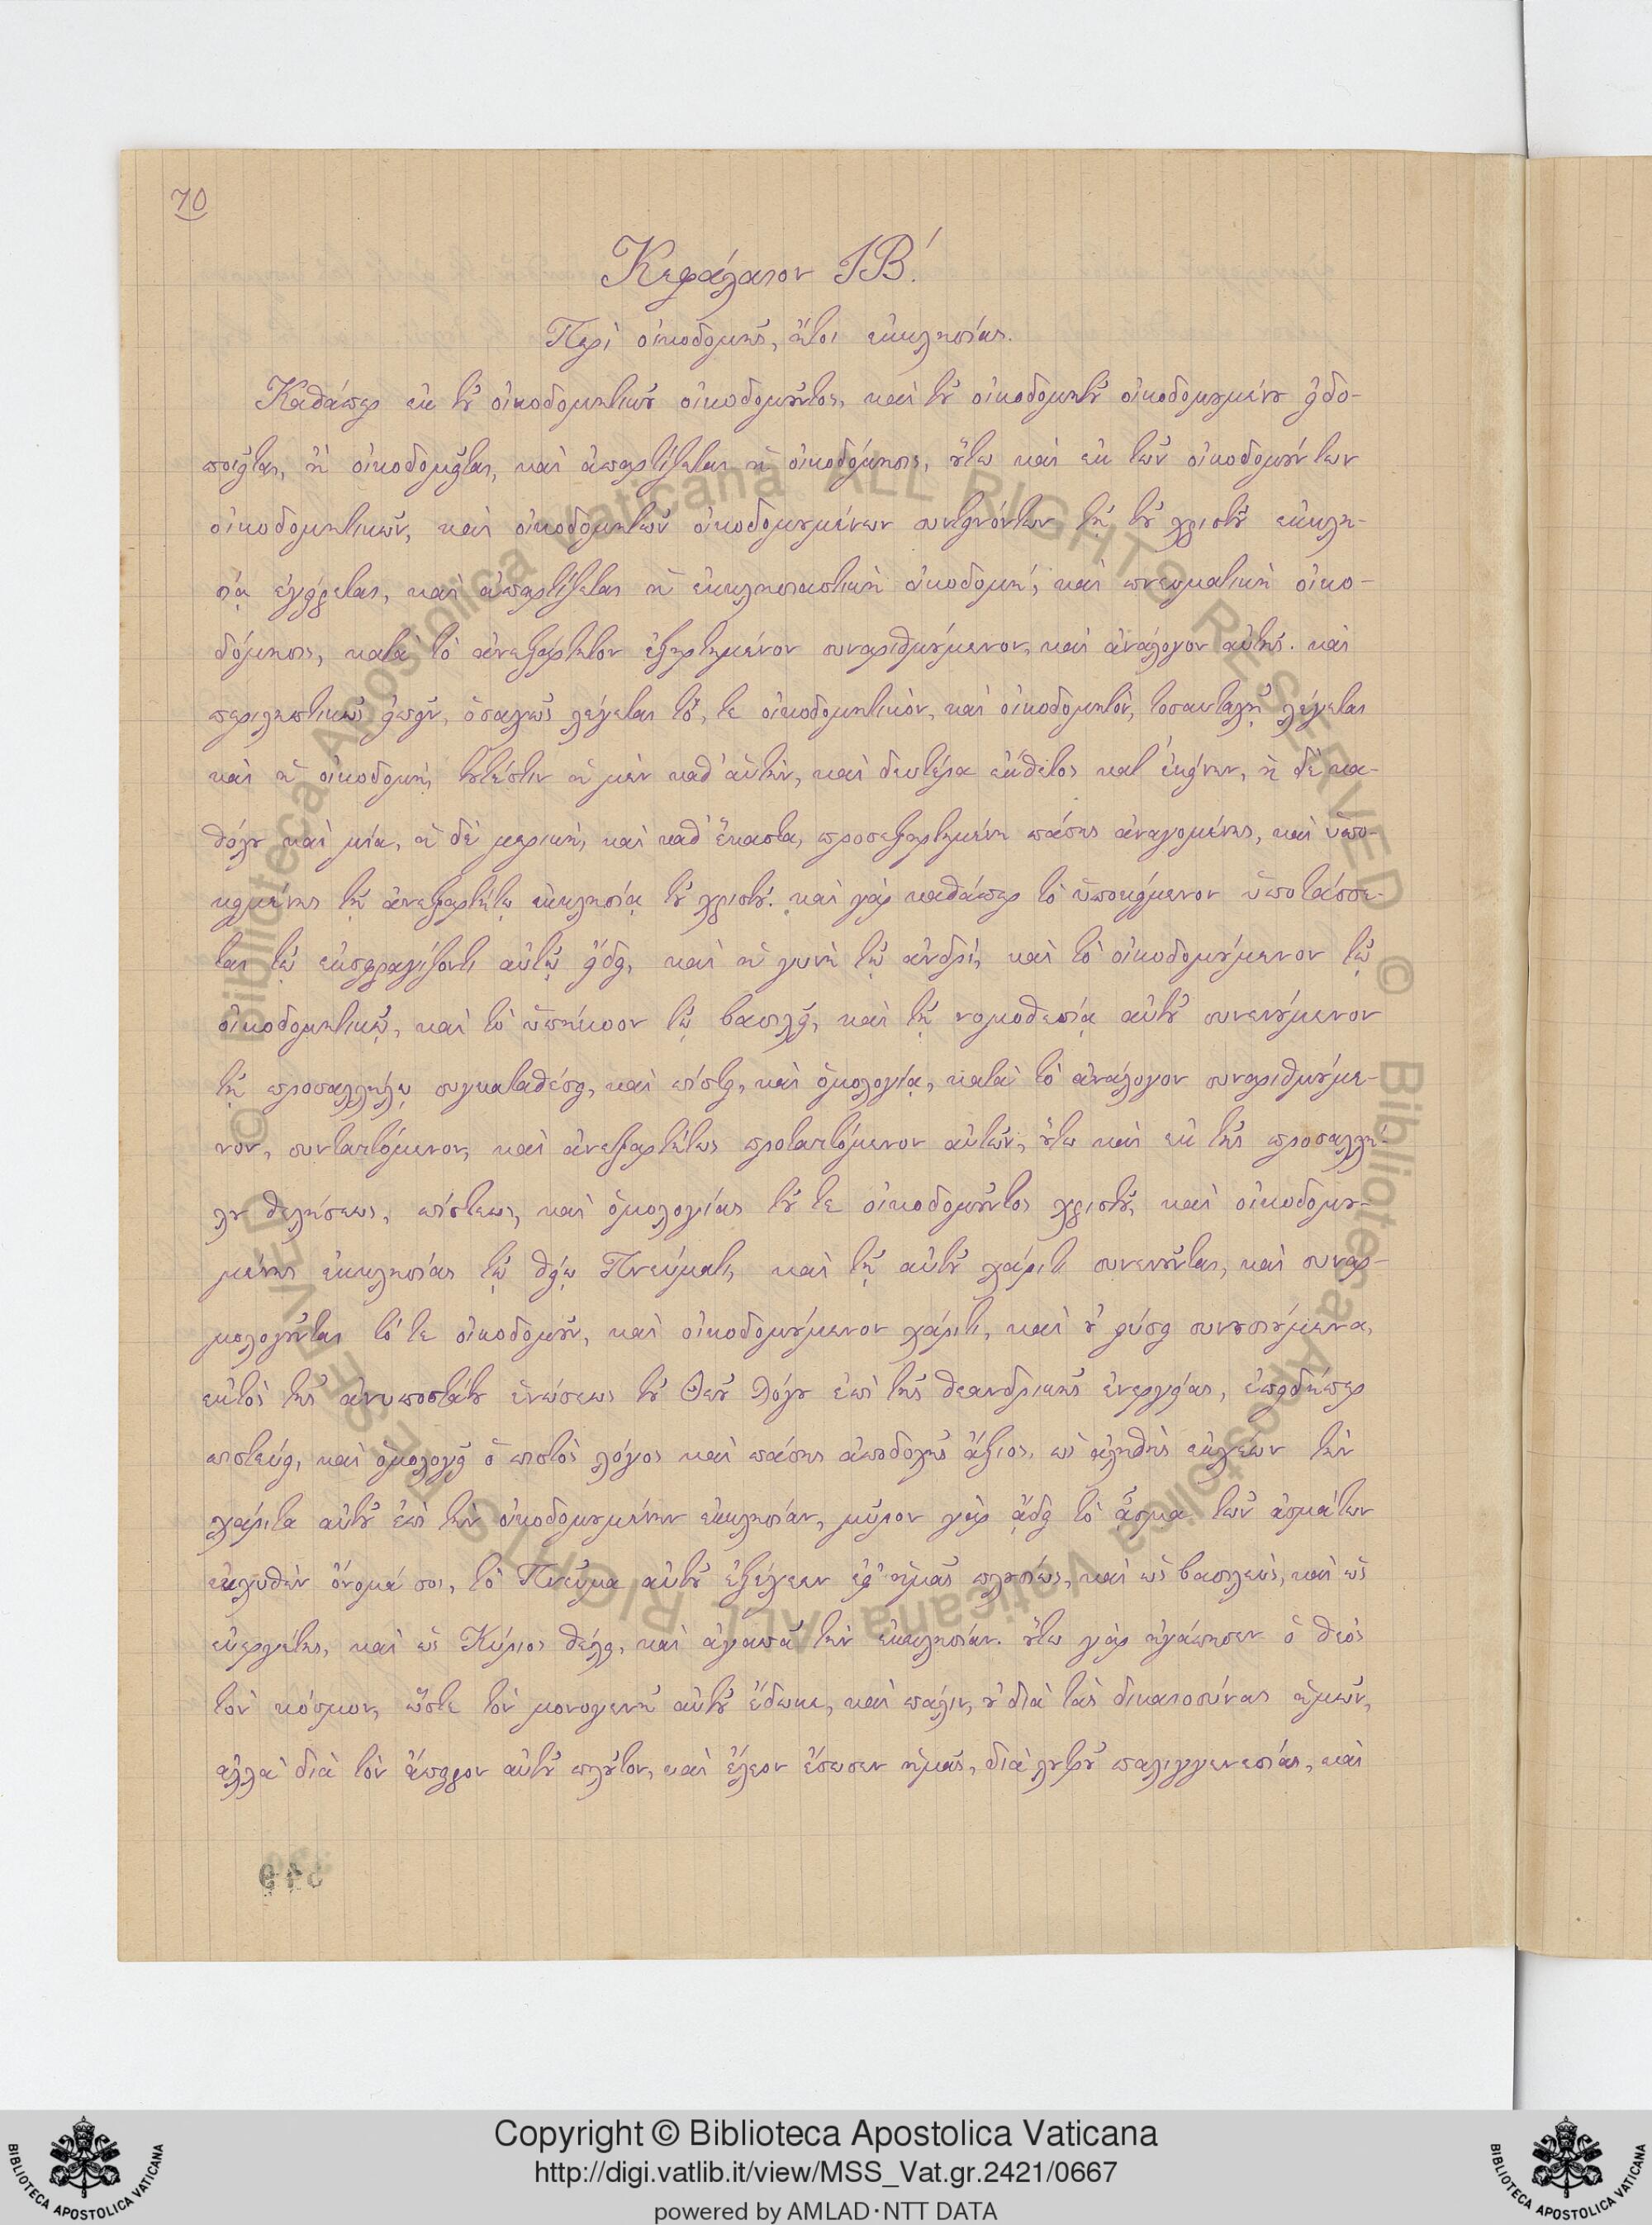 70
Κεφάλαιον ΙΒ΄.
Περὶ οἰκοδομῆς, ἤτοι ἐκκλησίας.
Καθάπερ ἐκ τοῦ οἰκοδομητικοῦ οἰκοδομοῦντος, καὶ τοῦ οἰκοδομητοῦ οἰκοδομουμένου εἰδο-
ποιεῖται, ἢ οἰκοδομεῖται, καὶ ἀπαρτίζεται ἡ οἰκοδόμησις, οὕτω καὶ ἐκ τῶν οἰκοδομούντων
οἰκοδομητικῶν, καὶ οἰκοδομητῶν οἰκοδομουμένων συντεινόντων τῇ τοῦ χριστοῦ ἐκκλη-
σίᾳ ἐγείρεται, καὶ ἀπαρτίζεται ἡ ἐκκλησιαστικὴ οἰκοδομή, καὶ πνευματικὴ οἰκο-
δόμησις, κατὰ τὸ ἀνεξάρτητον ἐξηρτημένον συναριθμούμενον, καὶ ἀνάλογον αὐτῆς. καὶ
περιληπτικῶς εἰπεῖν, ὁσαχῶς λέγεται τό, τε οἰκοδομητικὸν, καὶ οἰκοδομητὸν, τοσαυταχῇ λέγεται
καὶ ἡ οἰκοδομή, τουτέστιν ἡ μὲν καθ' αὑτὴν, καὶ δευτέρα ἔκθετος κατ' ἐκείνην, ἡ δὲ κα-
θόλου καὶ μία, ἡ δὲ μερικὴ, καὶ καθ' ἕκαστα, προσεξηρτημένη πάσης ἀναγομένης, καὶ ὑπο-
κειμένης τῇ ἀνεξαρτήτῳ ἐκκλησίᾳ τοῦ χριστοῦ. καὶ γὰρ καθάπερ τὸ ὑποκείμενον ὑποτάσσε-
ται τῷ ἐκσφραγίζοντι αὐτῷ εἴδει, καὶ ἡ γυνὴ τῷ ἀνδρί, καὶ τὸ οἰκοδομούμενον τῷ
οἰκοδομητικῷ, καὶ τὸ ὑπήκοον τῷ βασιλεῖ, καὶ τῇ νομοθεσίᾳ αὐτοῦ συνενούμενον
τῇ προσαλλήλῳ συγκαταθέσει, καὶ πίστει, καὶ ὁμολογίᾳ, κατὰ τὸ ἀνάλογον συναριθμούμε-
νον, συνταττόμενον, καὶ ἀνεξαρτήτως προταττόμενον αὐτῶν, οὕτω καὶ ἐκ τῆς προσαλλή-
λου θελήσεως, πίστεως, καὶ ὁμολογίας τοῦ τε οἰκοδομοῦντος χριστοῦ, καὶ οἰκοδομου-
μένης ἐκκλησίας τῷ θείῳ Πνεύματι, καὶ τῇ αὐτοῦ χάριτι συνενοῦνται, καὶ συναρ-
μολογοῦνται τό τε οἰκοδομοῦν, καὶ οἰκοδομούμενον χάριτι, καὶ οὐ φύσει συνουσιούμενα,
ἐκτὸς τῆς ἀνυποστάτου ἑνώσεως τοῦ Θεοῦ Λόγου ἐπὶ τῆς θεανδρικῆς ἐνεργείας, ἐπειδήπερ
πιστεύει, καὶ ὁμολογεῖ ὁ πιστὸς λόγος καὶ πάσης ἀποδοχῆς ἄξιος, ὡς ἀληθὴς ἐκχέων τὴν
χάριτα αὐτοῦ ἐπὶ τὴν οἰκοδομουμένην ἐκκλησίαν, μύρον γὰρ ᾄδει τὸ ᾆσμα τῶν ᾀσμάτων
ἐκχυθὲν ὄνομά σοι, τὸ Πνεῦμα αὐτοῦ ἐξέχεεν ἐφ' ἡμᾶς πλουσίως, καὶ ὡς βασιλεὺς, καὶ ὡς
εὐεργέτης, καὶ ὡς Κύριος θέλει, καὶ ἀγαπᾷ τὴν ἐκκλησίαν. οὕτω γὰρ ἠγάπησεν ὁ θεὸς
τὸν κόσμον, ὥστε τὸν μονογενῆ αὐτοῦ ἔδωκε, καὶ πάλιν, οὐ διὰ τὰς δικαιοσύνας ἡμῶν,
ἀλλὰ διὰ τὸν ἄπειρον αὐτοῦ πλοῦτον, καὶ ἔλεον ἔσωσεν ἡμᾶς, διὰ λουτροῦ παλιγγενεσίας, καὶ
© Biblioteca Apostolica Vaticana ALL RIGHTS RESERVED
© Biblioteca Apostolica Vaticana ALL RIGHTS RESERVED
Copyright © Biblioteca Apostolica Vaticana
http://digi.vatlib.it/view/MSS_Vat.gr.2421/0667
powered by AMLAD·NTT DATA
BIBLIOTECA APOSTOLICA VATICANA
BIBLIOTECA APOSTOLICA VATICANA